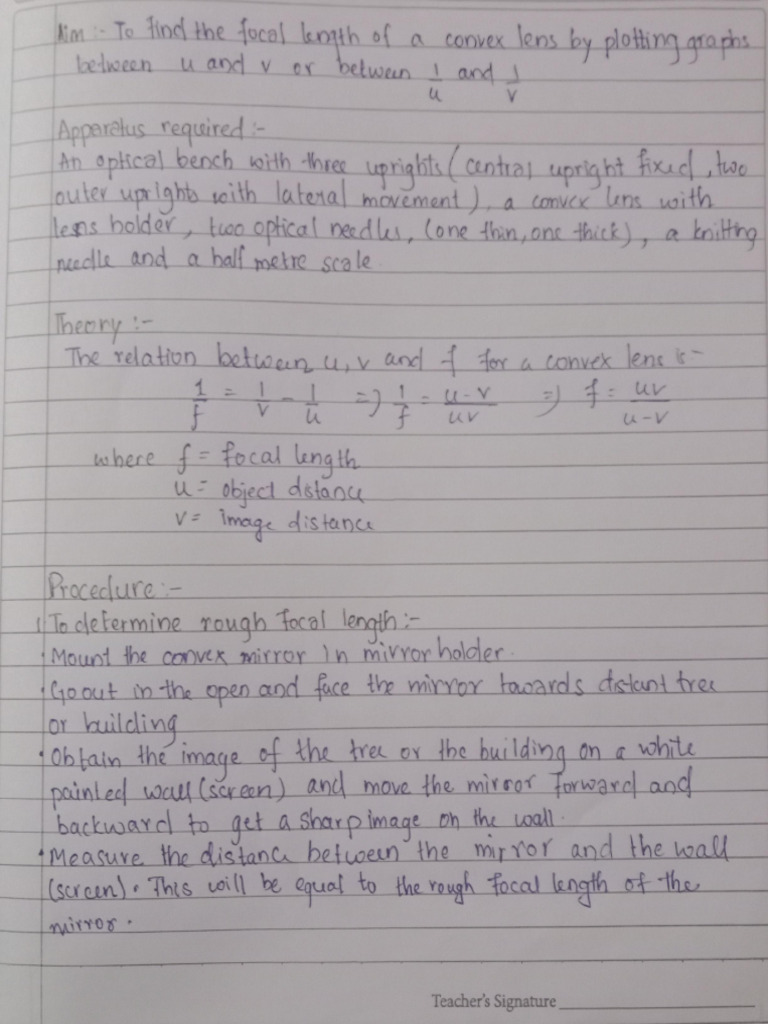 Aim :- To find the focal length of a convex lens by plotting graphs
between u and v or between 1/u and 1/v
Apparatus required :-
An optical bench with three uprights (central upright fixed, two
outer uprights with lateral movement), a convex lens with
lens holder, two optical needles, (one thin, one thick), a knitting
needle and a half metre scale.
Theory :-
The relation between u, v and f for a convex lens is-
1/f = 1/v - 1/u => 1/f = u-v/uv => f = uv/u-v
where f = focal length
u = object distance
v = image distance
Procedure :-
1 To determine rough focal length :-
• Mount the convex mirror in mirror holder.
• Go out in the open and face the mirror towards distant tree
or building
• Obtain the image of the tree or the building on a white
painted wall (screen) and move the mirror forward and
backward to get a sharp image on the wall.
• Measure the distance between the mirror and the wall
(screen). This will be equal to the rough focal length of the
mirror.
Teacher's Signature